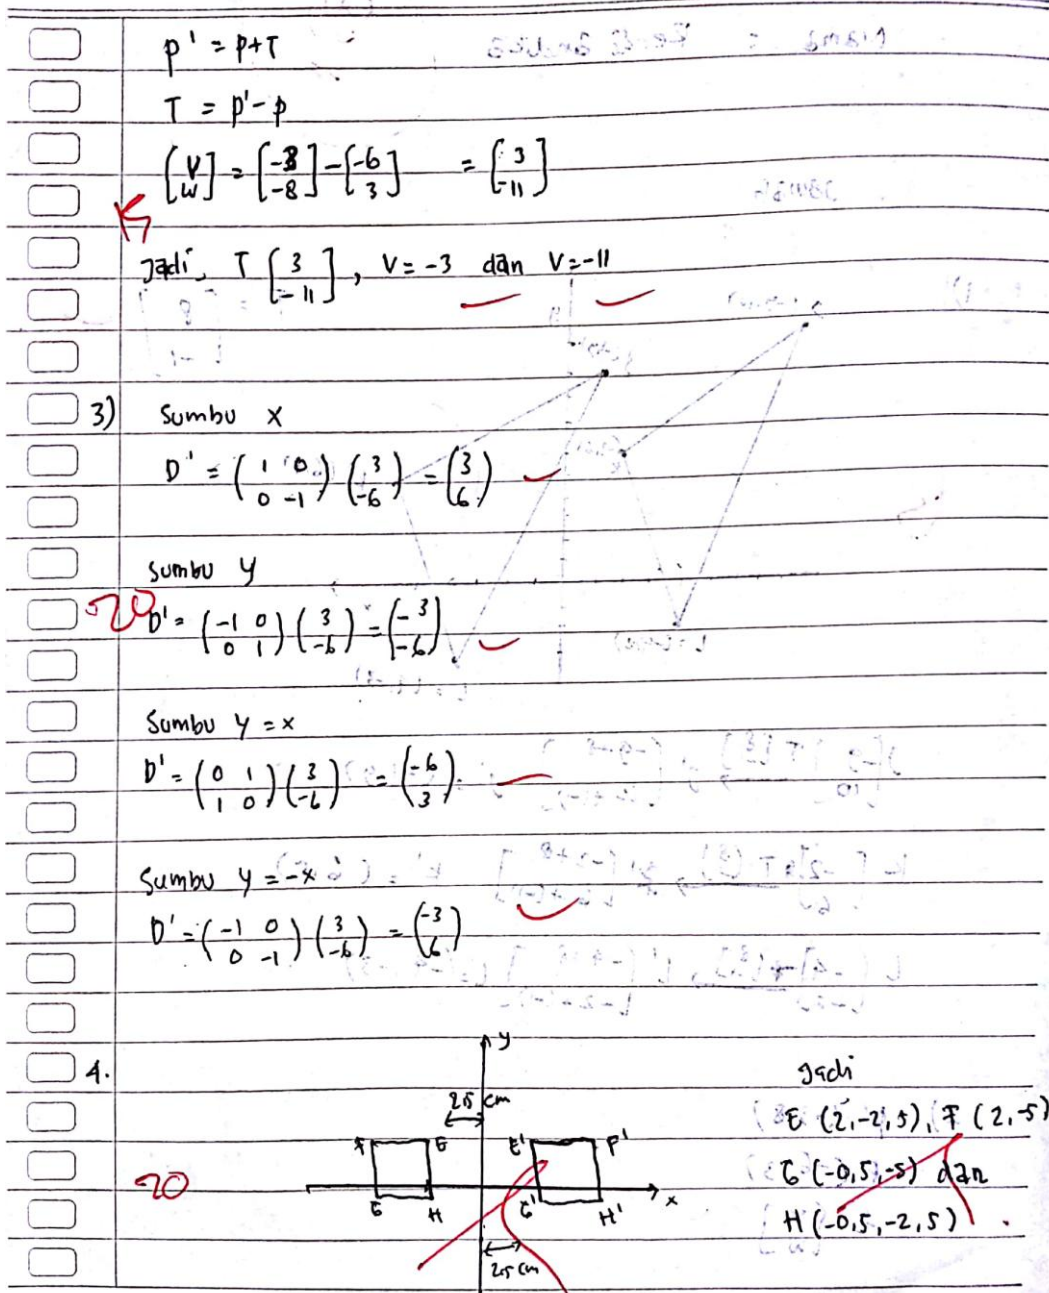 p' = p+T
T = p'-p
[V W] = [-3 -8] - [-6 3] = [3 -11]
Jadi, T [3 -11], V = -3 dan V = -11
3) Sumbu x
D' = (1 0 0 -1) (3 -6) = (3 6)
Sumbu y
20
D' = (-1 0 0 1) (3 -6) = (-3 -6)
Sumbu y = x
D' = (0 1 1 0) (3 -6) = (-6 3)
Sumbu y = -x
D' = (-1 0 0 -1) (3 -6) = (-3 6)
4.
y
2,5 cm
F E E' F'
G H G' H'
x
2,5 cm
20
Jadi
E (2,-2,5), F (2,-5)
G (-0,5,-5) dan
H (-0,5,-2,5)